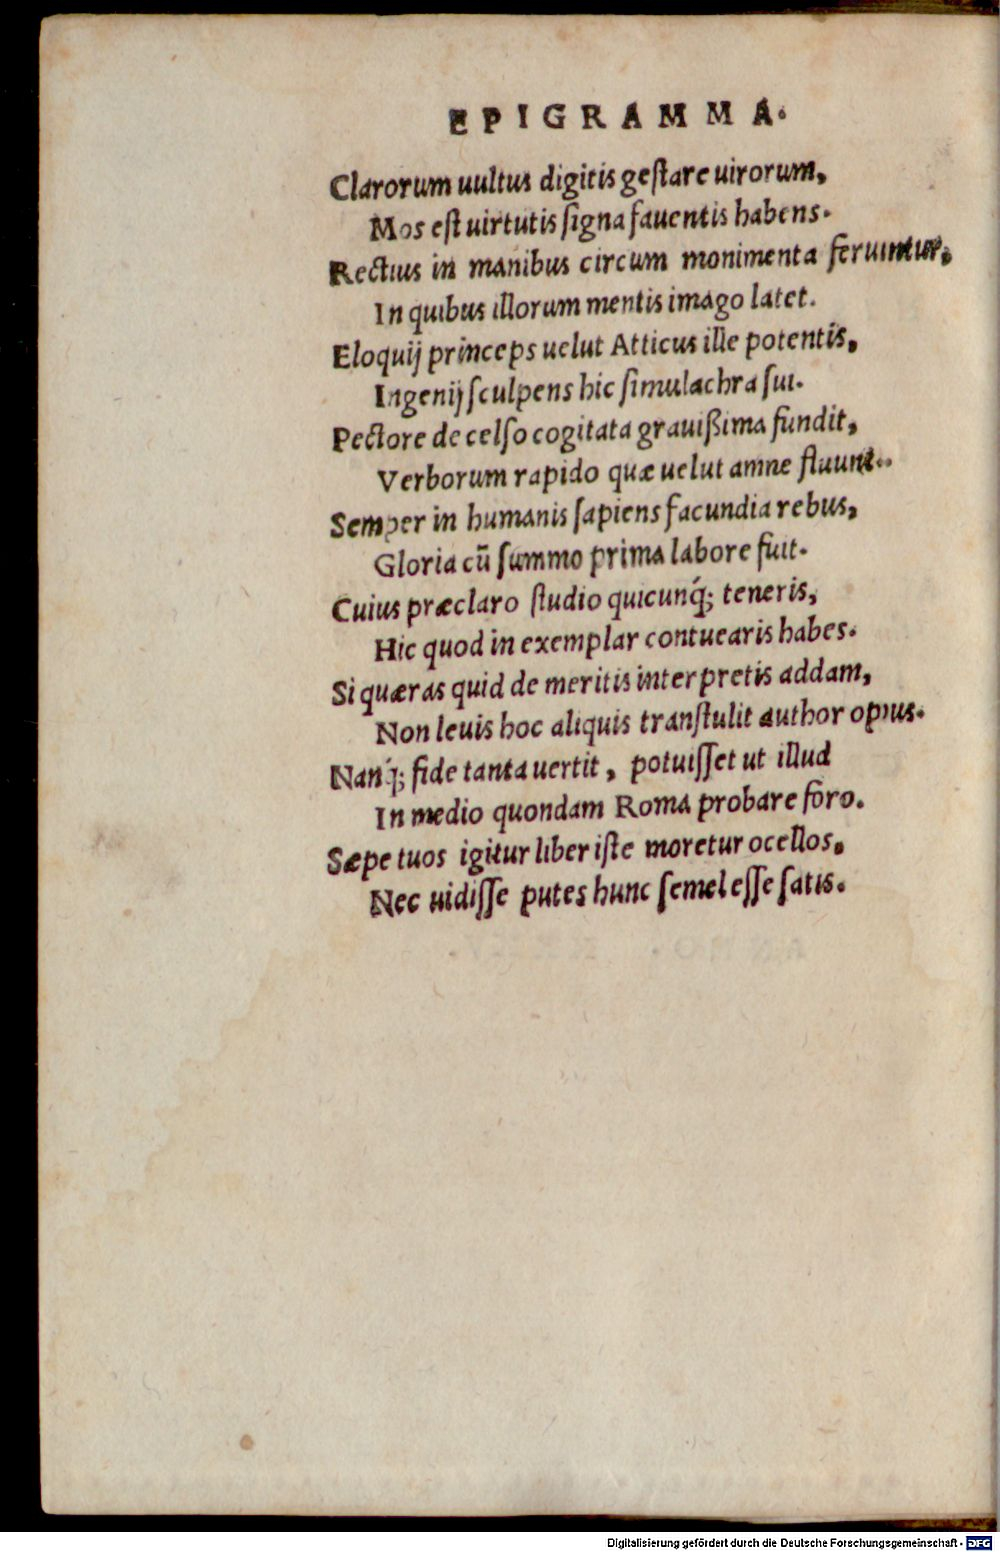 EPIGRAMMA.
Clarorum uultus digitis geſtare uirorum,
Mos eſt uirtutis ſigna fauentis habens.
Rectius in manibus circum monimenta feruntur,
In quibus illorum mentis imago latet.
Eloquij princeps uelut Atticus ille potentis,
Ingenij ſculpens hic ſimulachra ſui.
Pectore de celſo cogitata grauißima fundit,
Verborum rapido quæ uelut amne fluunt.
Semper in humanis ſapiens facundia rebus,
Gloria cũ ſummo prima labore fuit.
Cuius præclaro ſtudio quicunq́; teneris,
Hic quod in exemplar contuearis habes.
Si quæras quid de meritis interpretis addam,
Non leuis hoc aliquis tranſtulit author opus.
Nanq́; fide tanta uertit, potuiſſet ut illud
In medio quondam Roma probare foro.
Sæpe tuos igitur liber iſte moretur ocellos,
Nec uidiſſe putes hunc ſemel eſſe ſatis.
Digitalisierung gefördert durch die Deutsche Forschungsgemeinschaft - DFG